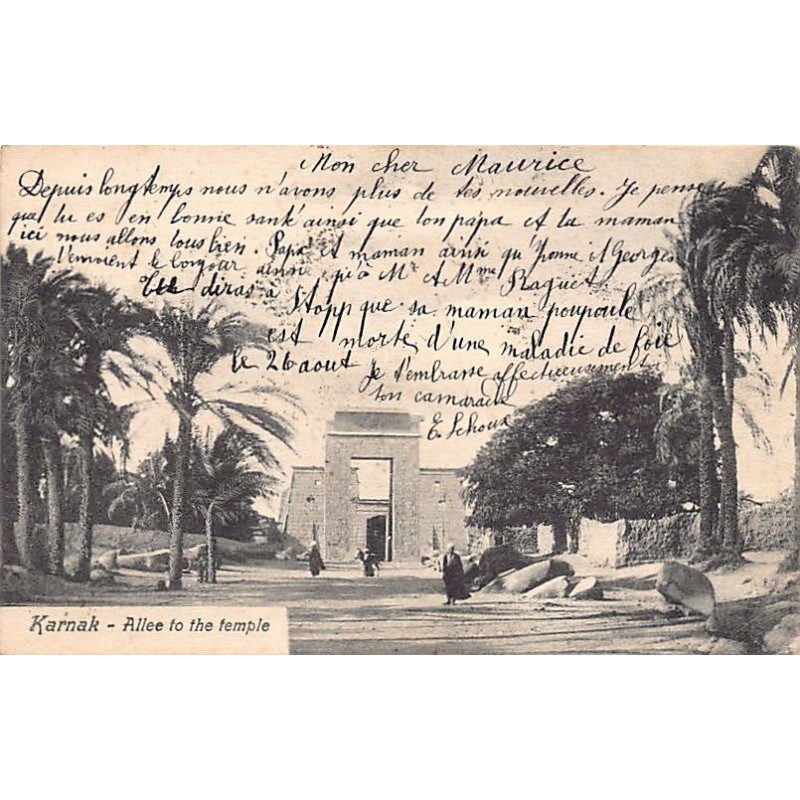 Mon cher Maurice
Depuis longtemps nous n'avons plus de tes nouvelles. Je pense
que tu es en bonne santé ainsi que ton papa et ta maman
ici nous allons tous bien. Papa et maman ainsi qu'Yonne et Georges
t'envoient le bonjour ainsi qu'à Mr et Mme Raguet
Tu diras à Stopp que sa maman poupoule
est morte d'une maladie de foie
le 26 aout Je t'embrasse affectueusement
ton camarade
E. Schoux
Karnak - Allee to the temple